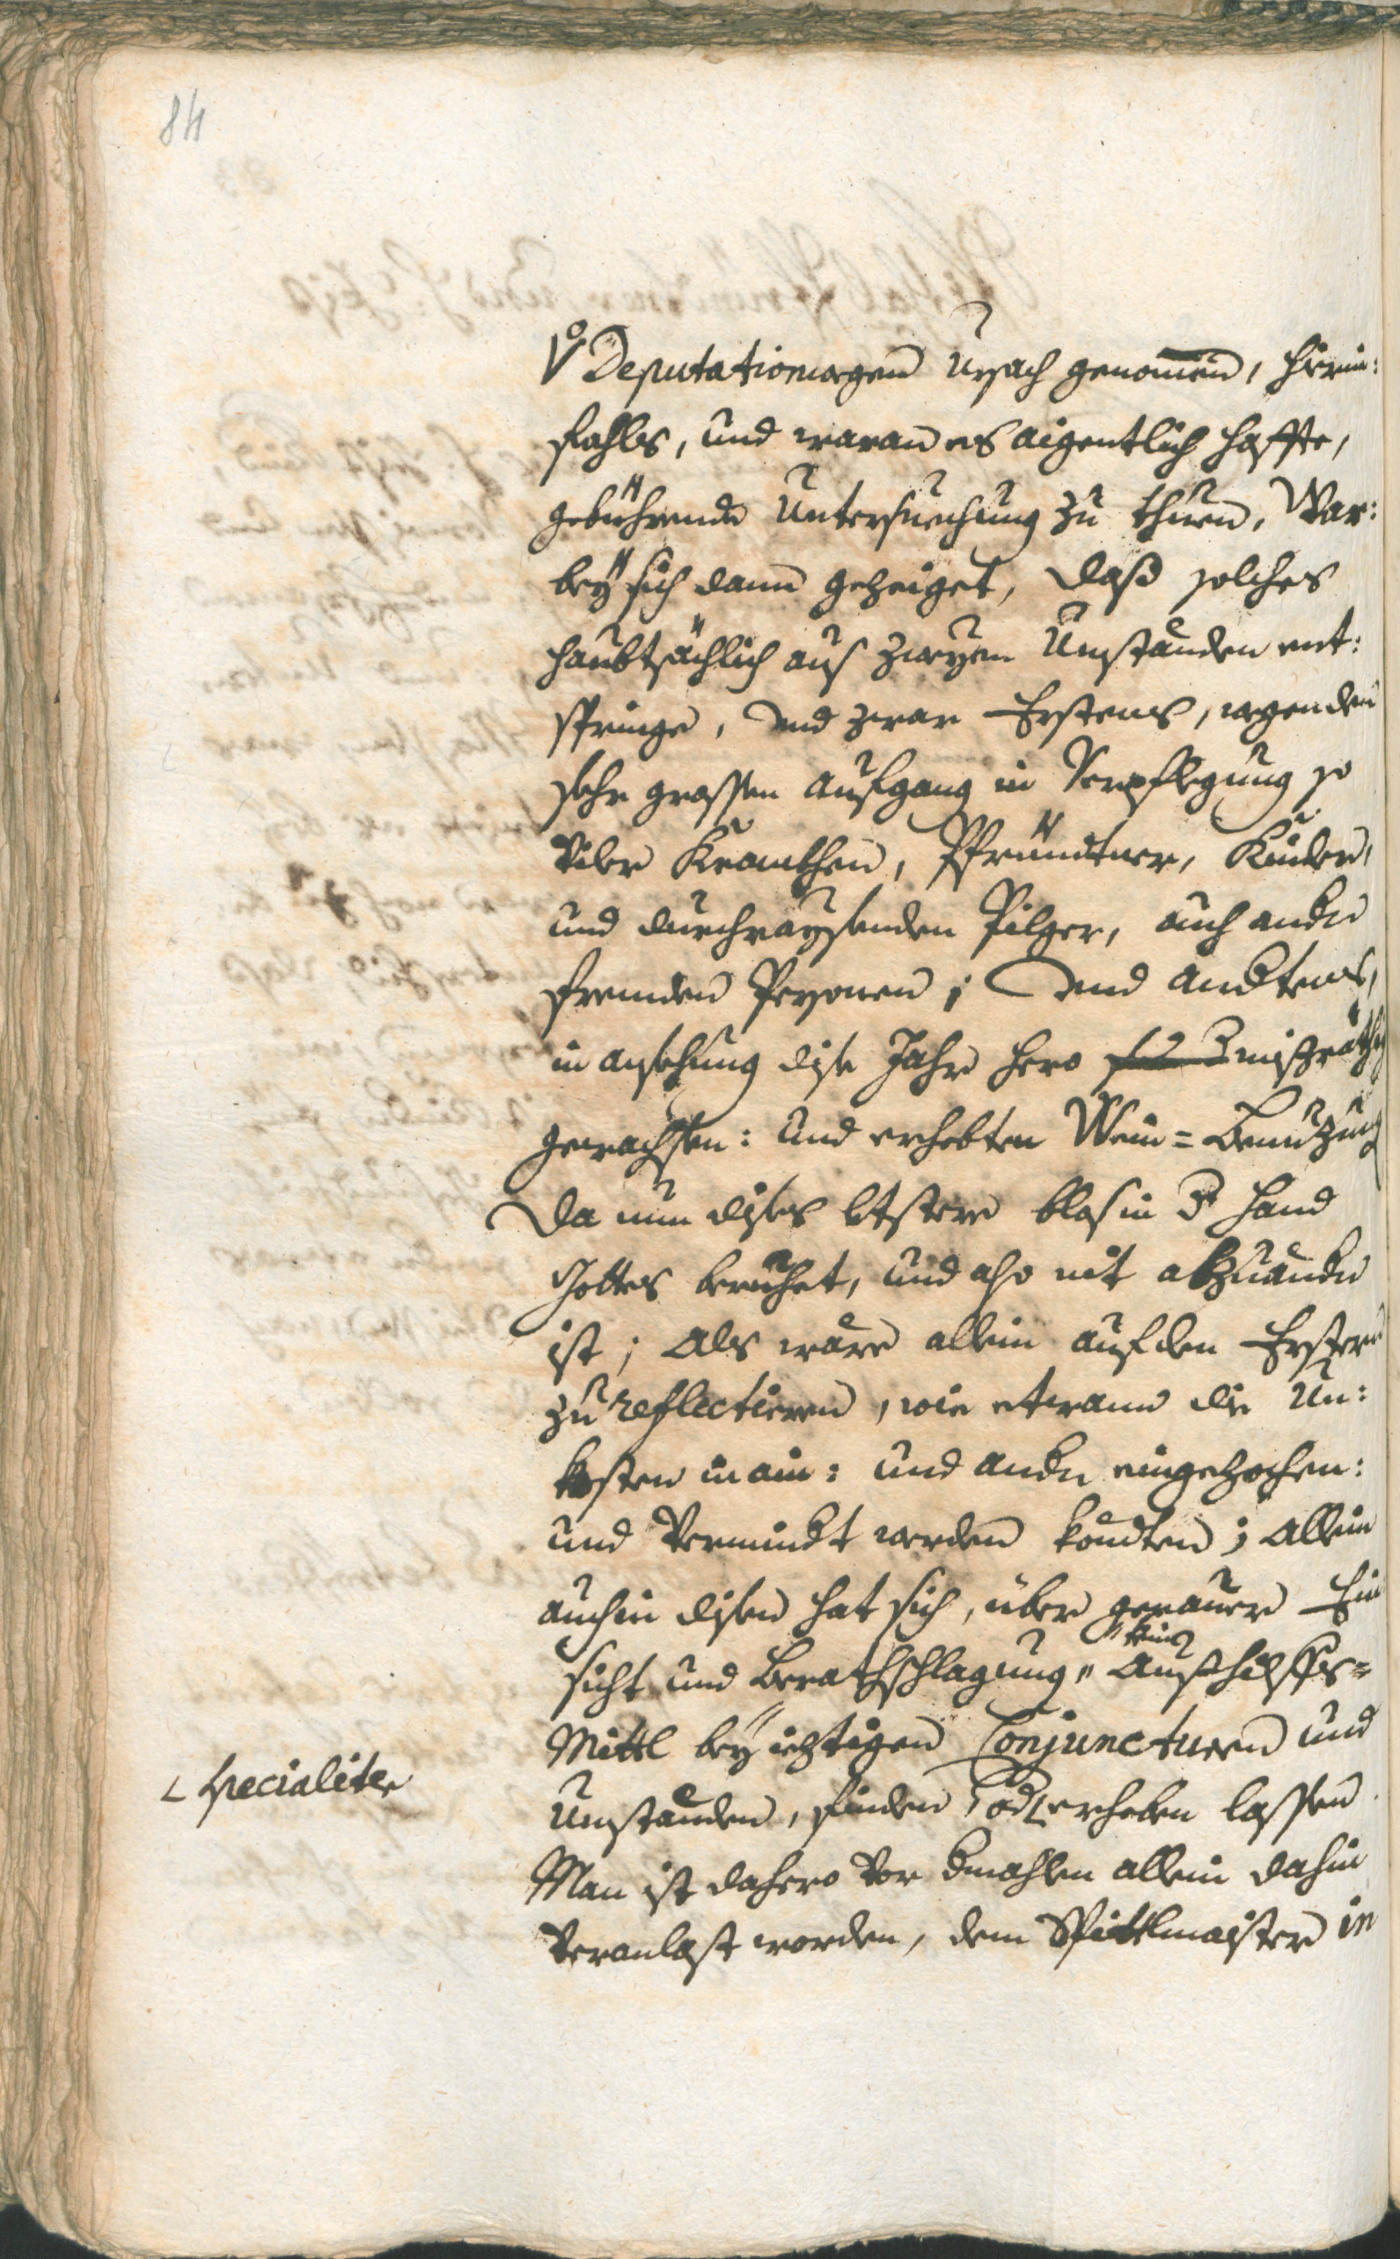 84
Deputationwegen Ursach genomen, hierin:
fahls, und waran es aigentlich haffte,
gebührende Untersuechung zu thuen, War:
bey sich dann gezeiget, daß solches
haubtsächlich aus zweyen Umständen ent:
springe, und zwar Erstens, wegen den
sehr grossen Ausgang in Verpflegung so
viler Krankhen, Pfründtner, Kinder,
und durchraysenden Pilger, auch ander
frembden Persohnen; Und andtens,
in ansehung dise Jahr hero mißräthig
gewachsen: und erhebten Wein=Benuzung
Da nun dises letstere blos in der Hand
Gottes beruhet, und also nit abzuändern
ist; Als wäre allein auf den Erstern
zu reflectieren, wie etwann die Un:
kosten in ain: und ander eingezochen:
und vermindert werden köndten; Allein
auch in disen hat sich, über genauer Ein
sicht und Berathschlagung, " "kein
Außhilffs=
Mittl bey ieztigen Conjuncturen und
Umständen, finden, oder erheben lassen.
specialiter
Man ist dahero vor dermahlen allein dahin
veranlast worden, dem Spittlmaister in